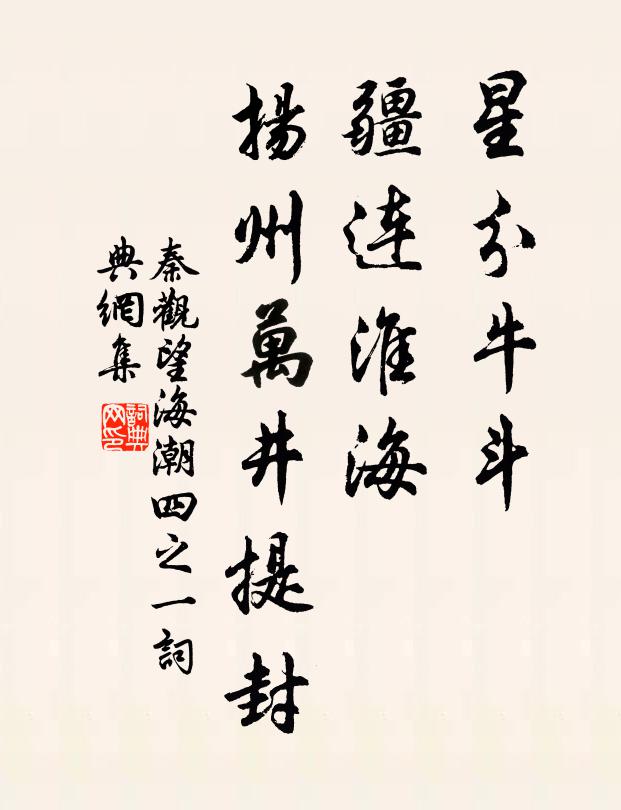 星分牛斗
疆連淮海
揚州萬井提封
秦觀望海潮四之一詞
典網集
詞典
网印